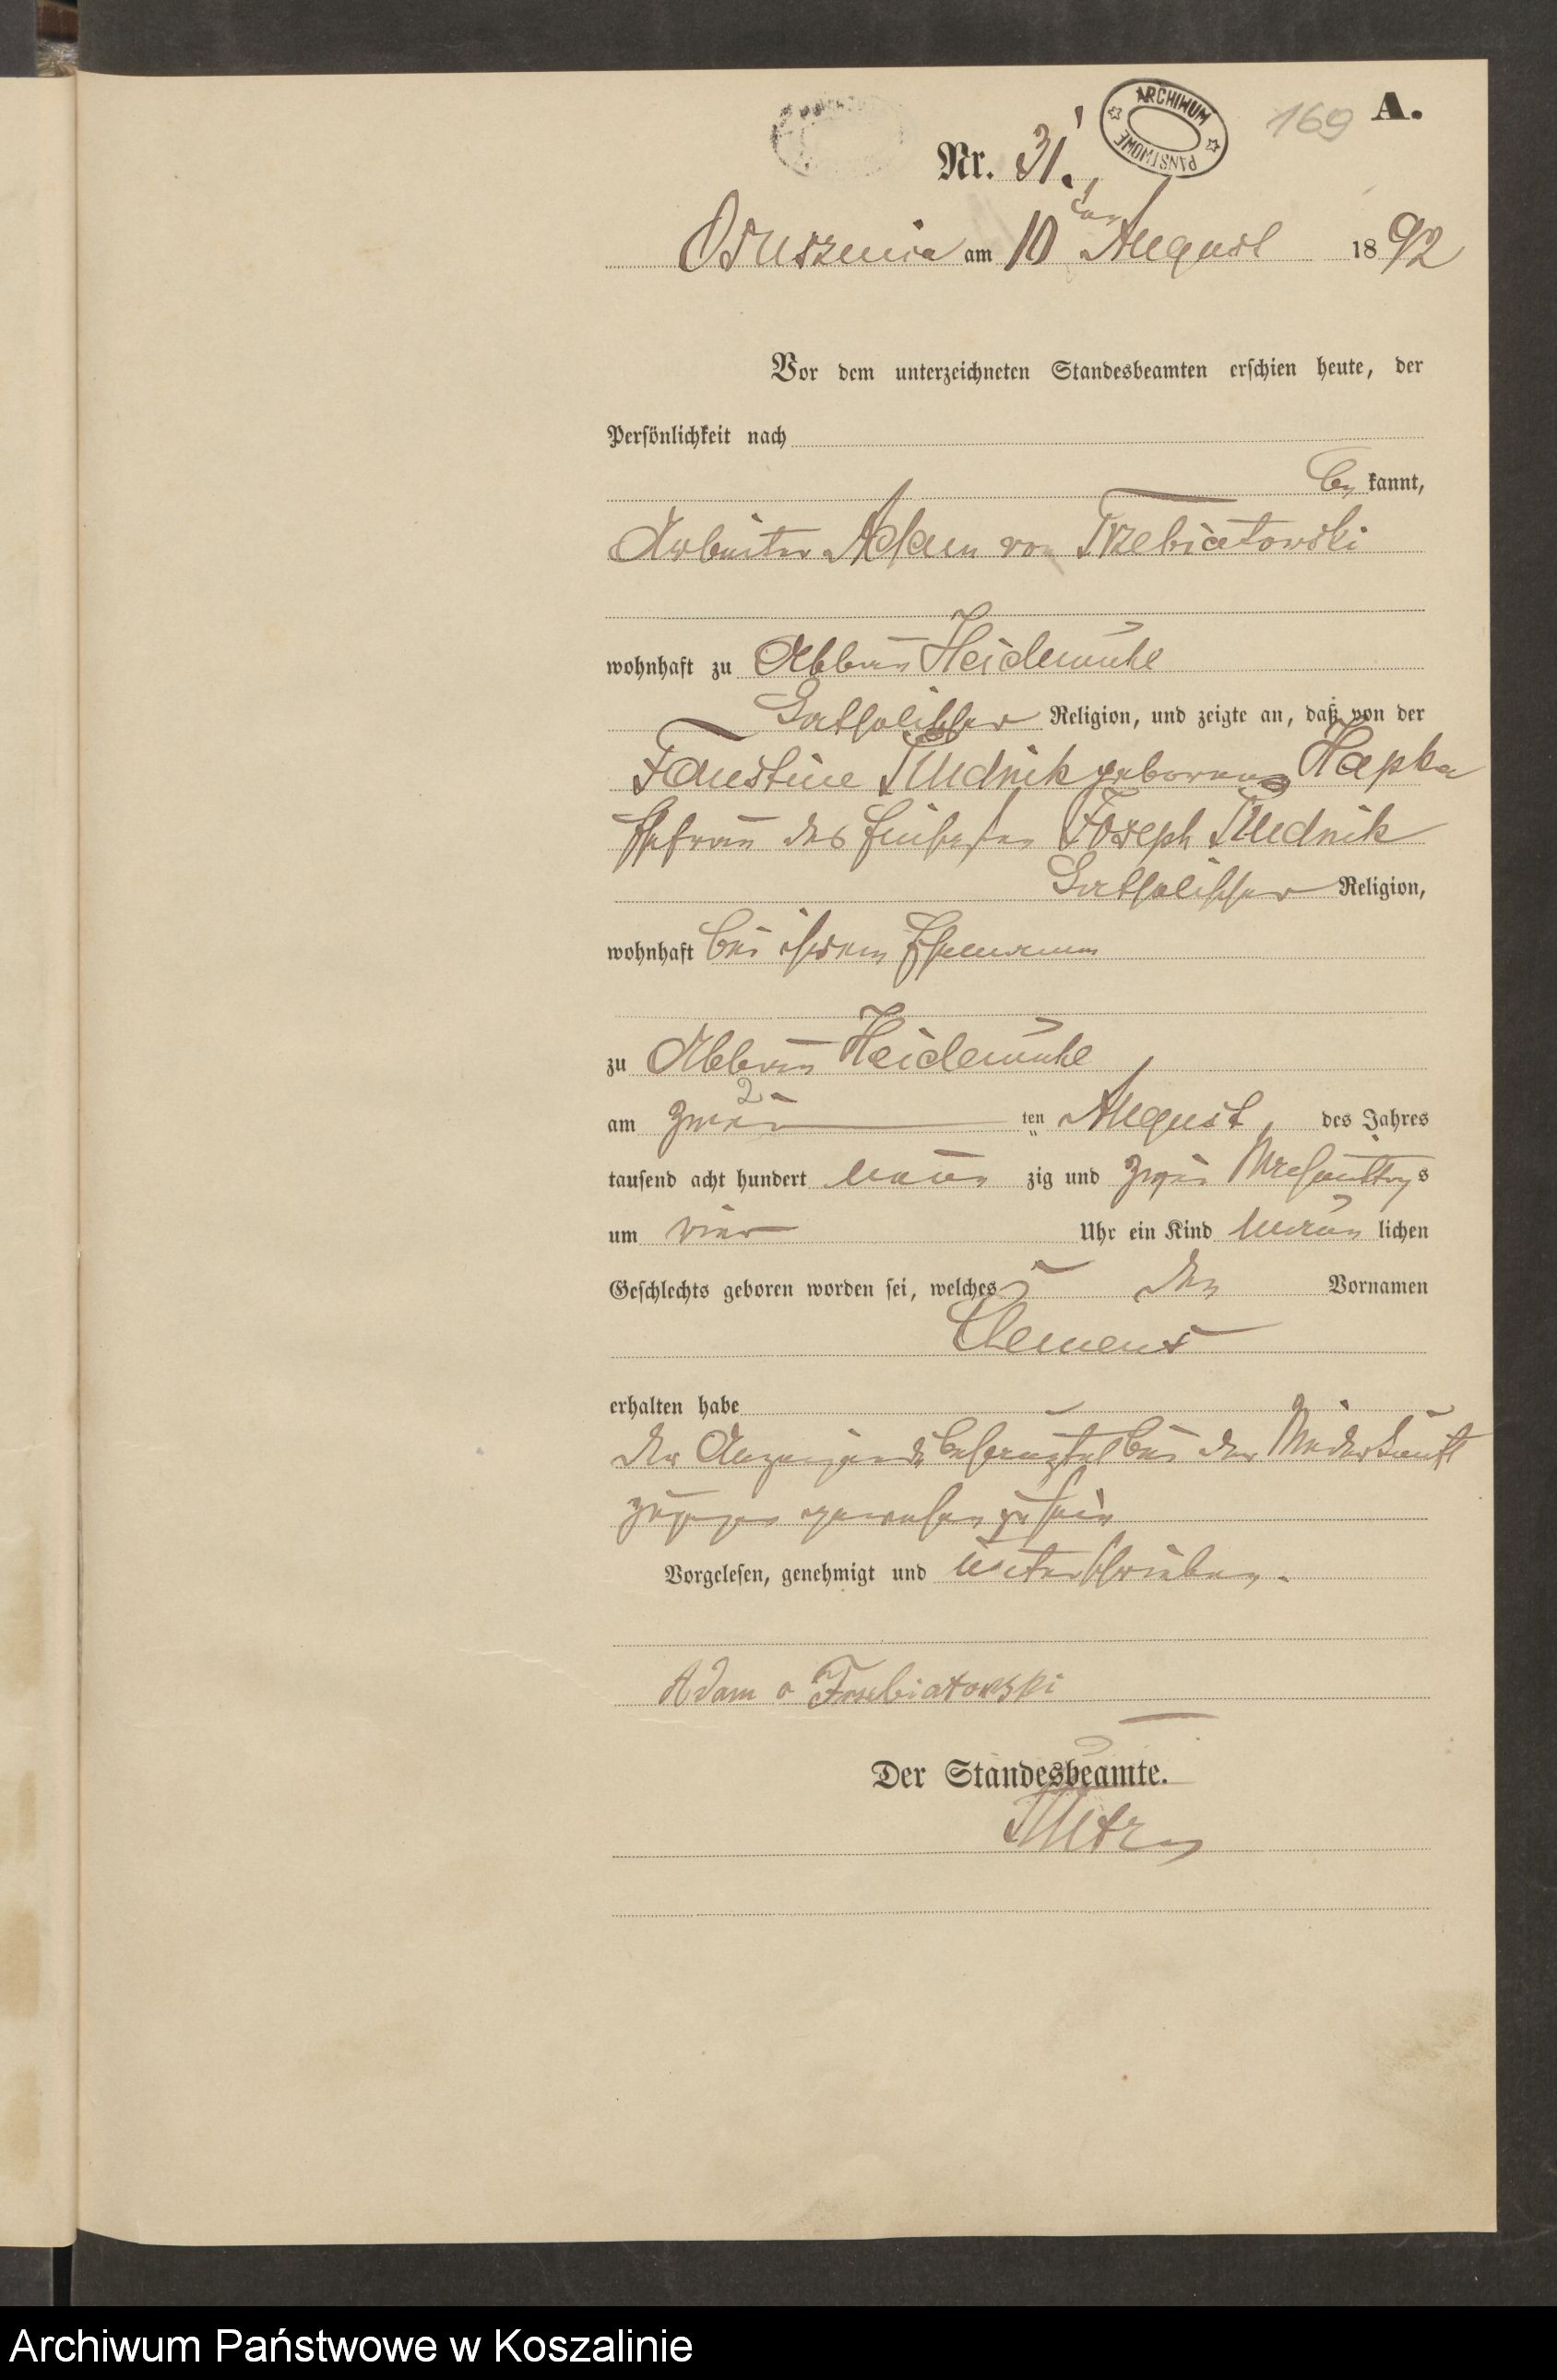 ARCHIWUM PAŃSTWOWE
169
A.
Nr. 31.
Osuszniza am 10ten August 1892
Vor dem unterzeichneten Standesbeamten erschien heute, der
Persönlichkeit nach
be kannt,
Arbeiter Adam von Trzebiatowski
wohnhaft zu Abbau Heidemühl
Catholischer Religion, und zeigte an, daß von der
Faustine Rudnik geborene Hapka
Ehefrau des Joseph Rudnik
Catholischer Religion,
wohnhaft bei ihrem Ehemann
zu Abbau Heidemühl
am zwei 2 ten August des Jahres
tausend acht hundert neun zig und zwei Nachmittags
um vier Uhr ein Kind männ lichen
Geschlechts geboren worden sei, welches den Vornamen
Clemens
erhalten habe
der Anzeigende bei der Niederkunft
zugegen gewesen zu sein
Vorgelesen, genehmigt und unterschrieben.
Adam v Trzebiatowski
Der Standesbeamte.
Archiwum Państwowe w Koszalinie